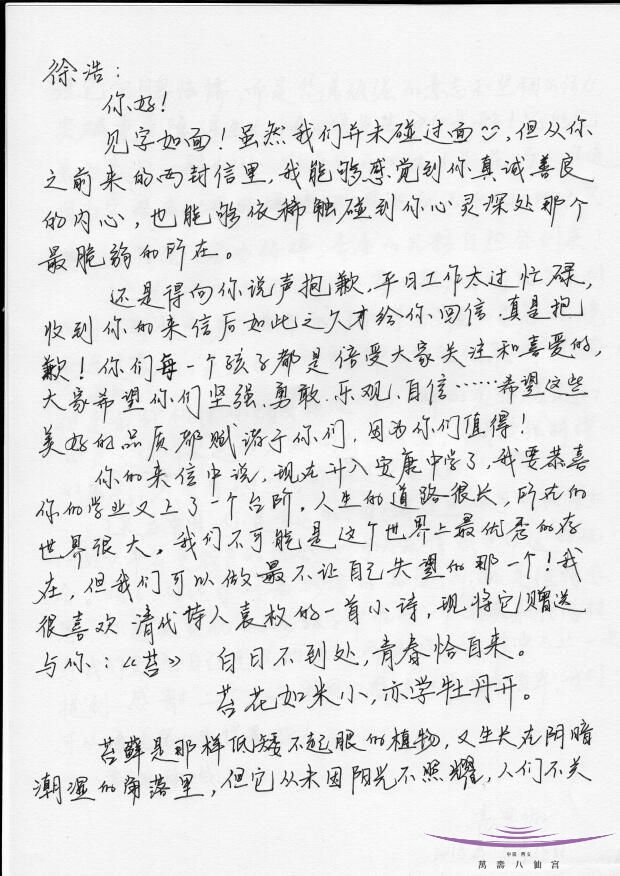 徐浩：
你好！
见字如面！虽然我们并未碰过面，但从你
之前来的两封信里，我能够感觉到你真诚善良
的内心，也能够依稀触碰到你心灵深处那个
最脆弱的所在。
还是得向你说声抱歉，平日工作太过忙碌，
收到你的来信后如此之久才给你回信，真是抱
歉！你们每一个孩子都是倍受大家关注和喜爱的，
大家希望你们坚强、勇敢、乐观、自信……希望这些
美好的品质都赋诸于你们，因为你们值得！
你的来信中说，现在升入安康中学了，我要恭喜
你的学业又上了一个台阶。人生的道路很长，所在的
世界很大。我们不可能是这个世界上最优秀的存
在，但我们可以做最不让自己失望的那一个！我
很喜欢清代诗人袁枚的一首小诗，现将它赠送
与你：《苔》 白日不到处，青春恰自来。
苔花如米小，亦学牡丹开。
苔藓是那样低矮不起眼的植物，又生长在阴暗
潮湿的角落里，但它从未因阳光不照耀，人们不关
中国·西安
萬壽八仙宮